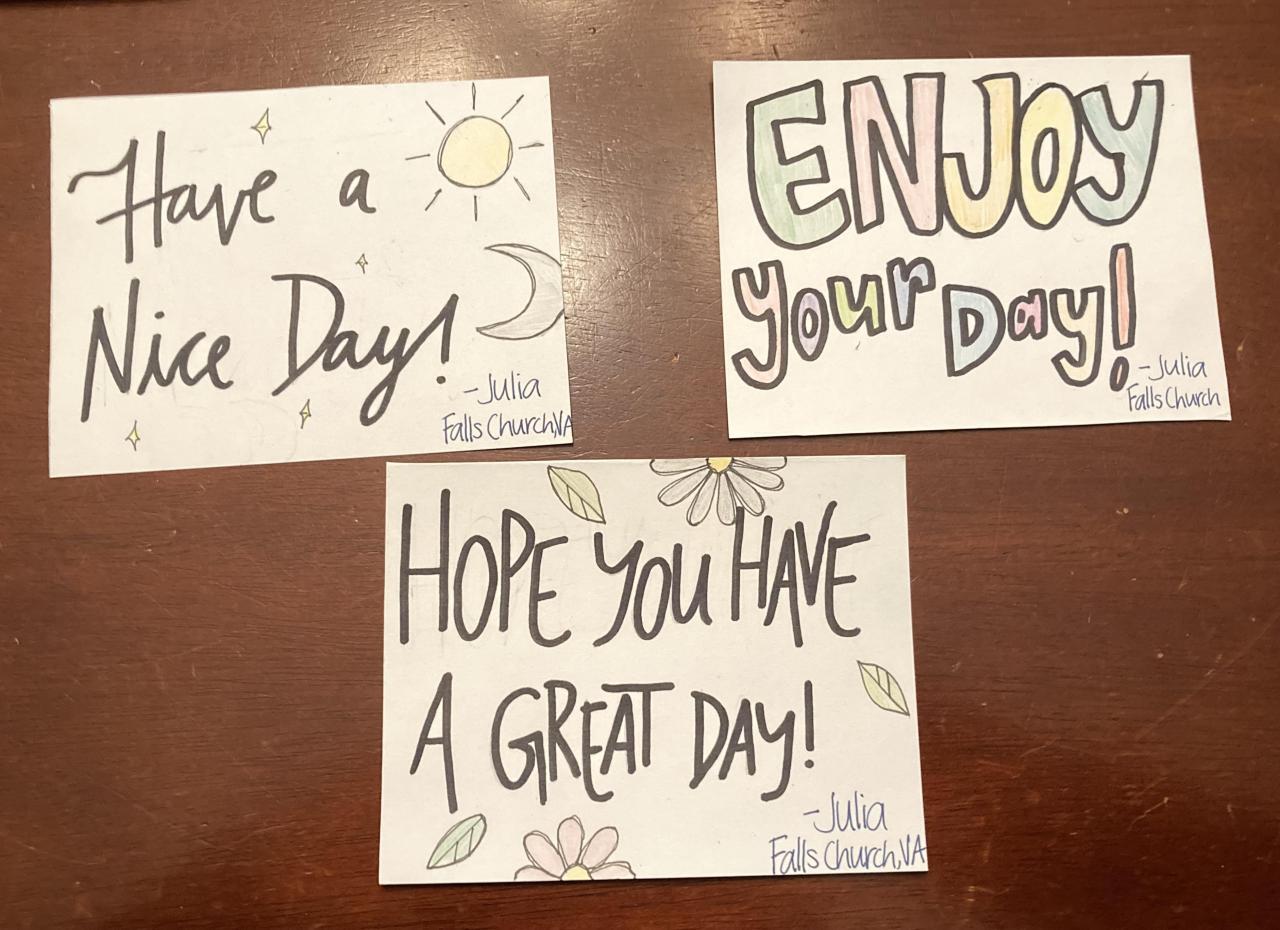 Have a
Nice Day!
-Julia
Falls Church,VA
ENJOY
your Day!
-Julia
Falls Church
HOPE YOU HAVE
A GREAT DAY!
-Julia
Falls Church,VA